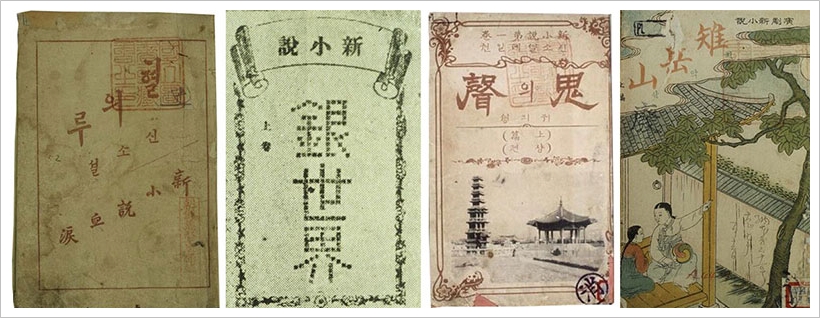 혈의루
신소셜
新小說
血淚
新小說
上卷
銀世界
新小說第一卷
鬼의聲
귀의셩
(上篇)
演劇新小說
雉岳山